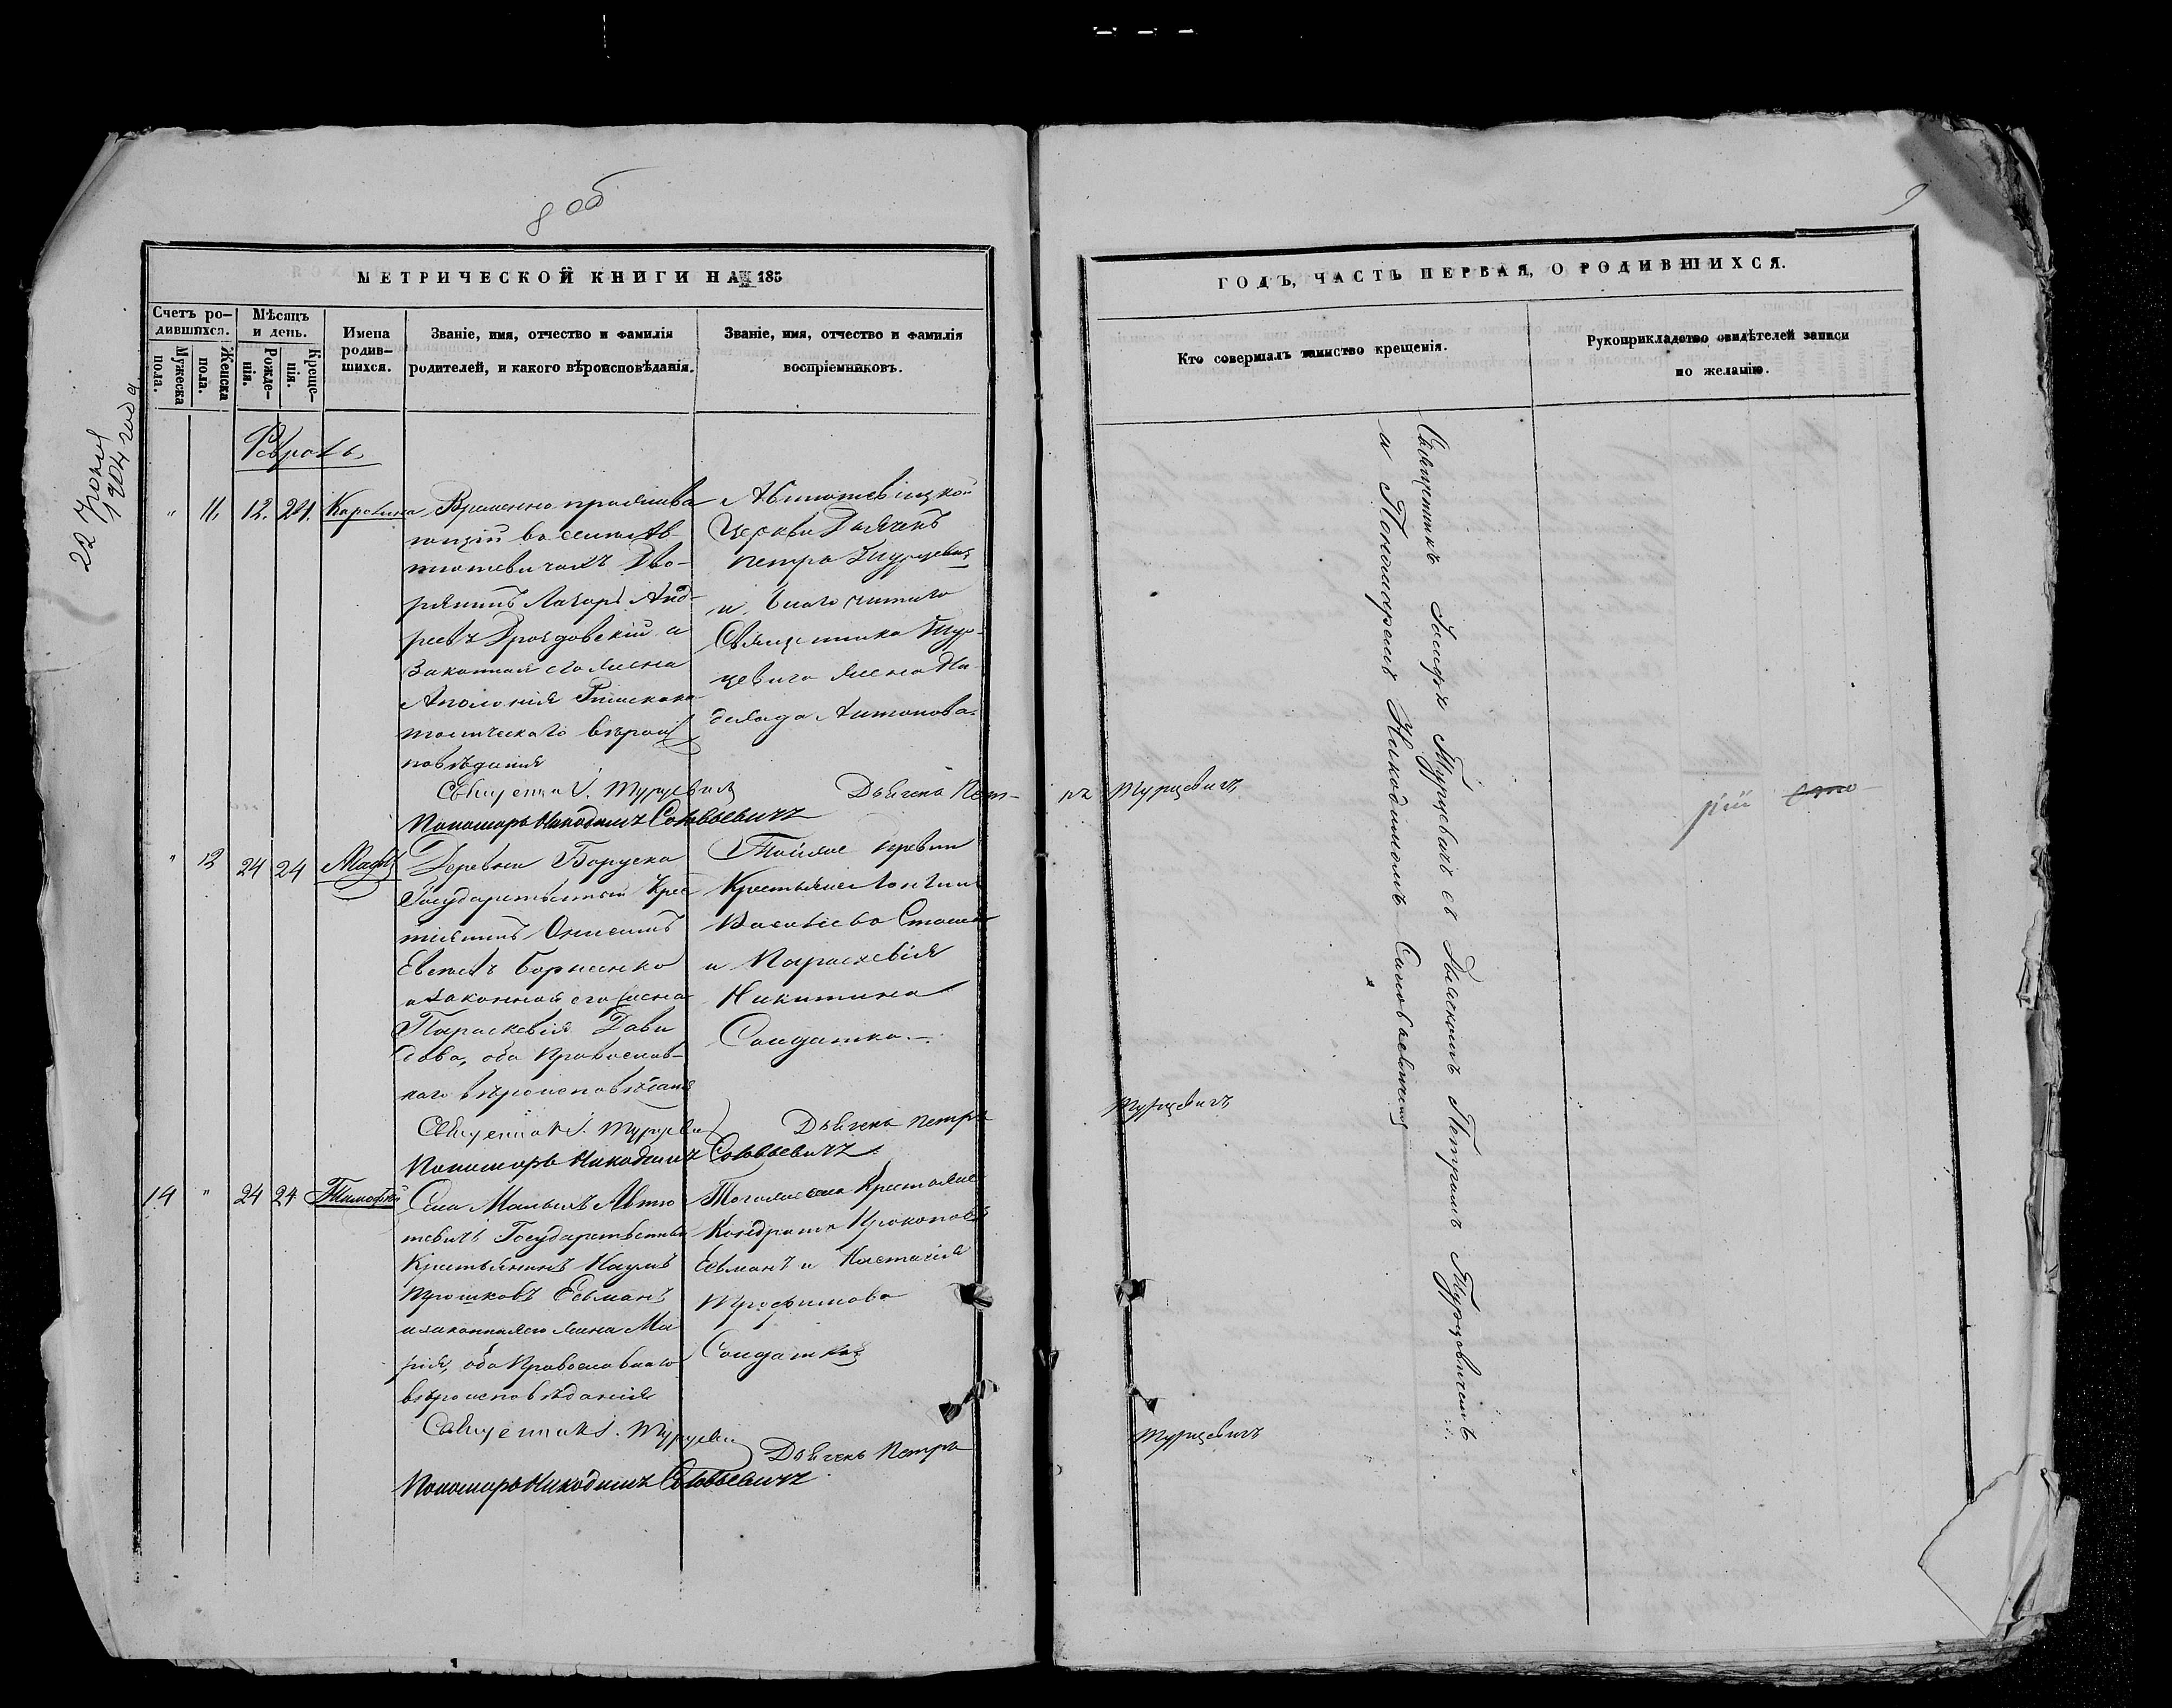 8 об
9
22 Июня
1904 года
МЕТРИЧЕСКОЙ КНИГИ НА 185
Счетъ ро-
дившихся.
Мужеска
пола.
Женска
пола.
Мѣсяцъ
и день.
Рожде-
нія.
Креще-
нія.
Имена
родив-
шихся.
Званіе, имя, отчество и фамилія
родителей, и какого вѣроисповѣданія.
Званіе, имя, отчество и фамилія
воспріемниковъ.
Февраль
" 11. 12. 24. Каролина
Временно прожива
ющій въ селѣ Ав-
тютевичахъ Дво-
рянинъ Лазарь Анд-
реевъ Дроздовскій и
Законная его жена
Аполонія Римскока
толическаго вѣроис
повѣданія
Автютевицкой
Церкви Дьячекъ
Петръ Турцевичъ
и благочиннаго
Священника Тур-
цевича жена На-
дежда Антонова.
Священникъ І. Турцевичъ Дьячекъ Пет-
ръ Турцевичъ
Пономарь Никодимъ Соловьевичъ
" 12 24 24
Деревни Боруска
Государственный Крес
тіянинъ Онисимъ
Евсеевъ Борисенко
и законная его жена
Параскевія Дави
дова, оба Православ-
наго вѣроисповѣданія
Тойже деревни
Крестьяне Лонгинъ
Васильевъ
и Параскевія
Никитина
Солдатка.
Священникъ І. Турцевичъ Дьячекъ Петръ
Турцевичъ
Пономарь Никодимъ Соловьевичъ
14 " 24 24 Тимофей
Села Малыхъ Автю
тевичъ Государственный
Крестьянинъ Наумъ
Трошковъ Евманъ
и законная его жена Ма
рія, оба Православнаго
вѣроисповѣданія
Тогоже села Крестьяне
Кондратъ Прокоповъ
Евманъ и Настасія
Трофимова
Солдатка
Священникъ І. Турцевичъ
Дьячекъ Петръ
Турцевичъ
Пономарь Никодимъ Соловьевичъ
ГОДЪ, ЧАСТЬ ПЕРВАЯ, О РОДИВШИХСЯ.
Кто совершалъ таинство крещенія.
Рукоприкладство свидѣтелей записи
по желанію.
Священникъ Іосифъ Турцевичъ съ Дьячкомъ Петромъ Турцевичемъ
и Пономаремъ Никодимомъ Соловьевичемъ